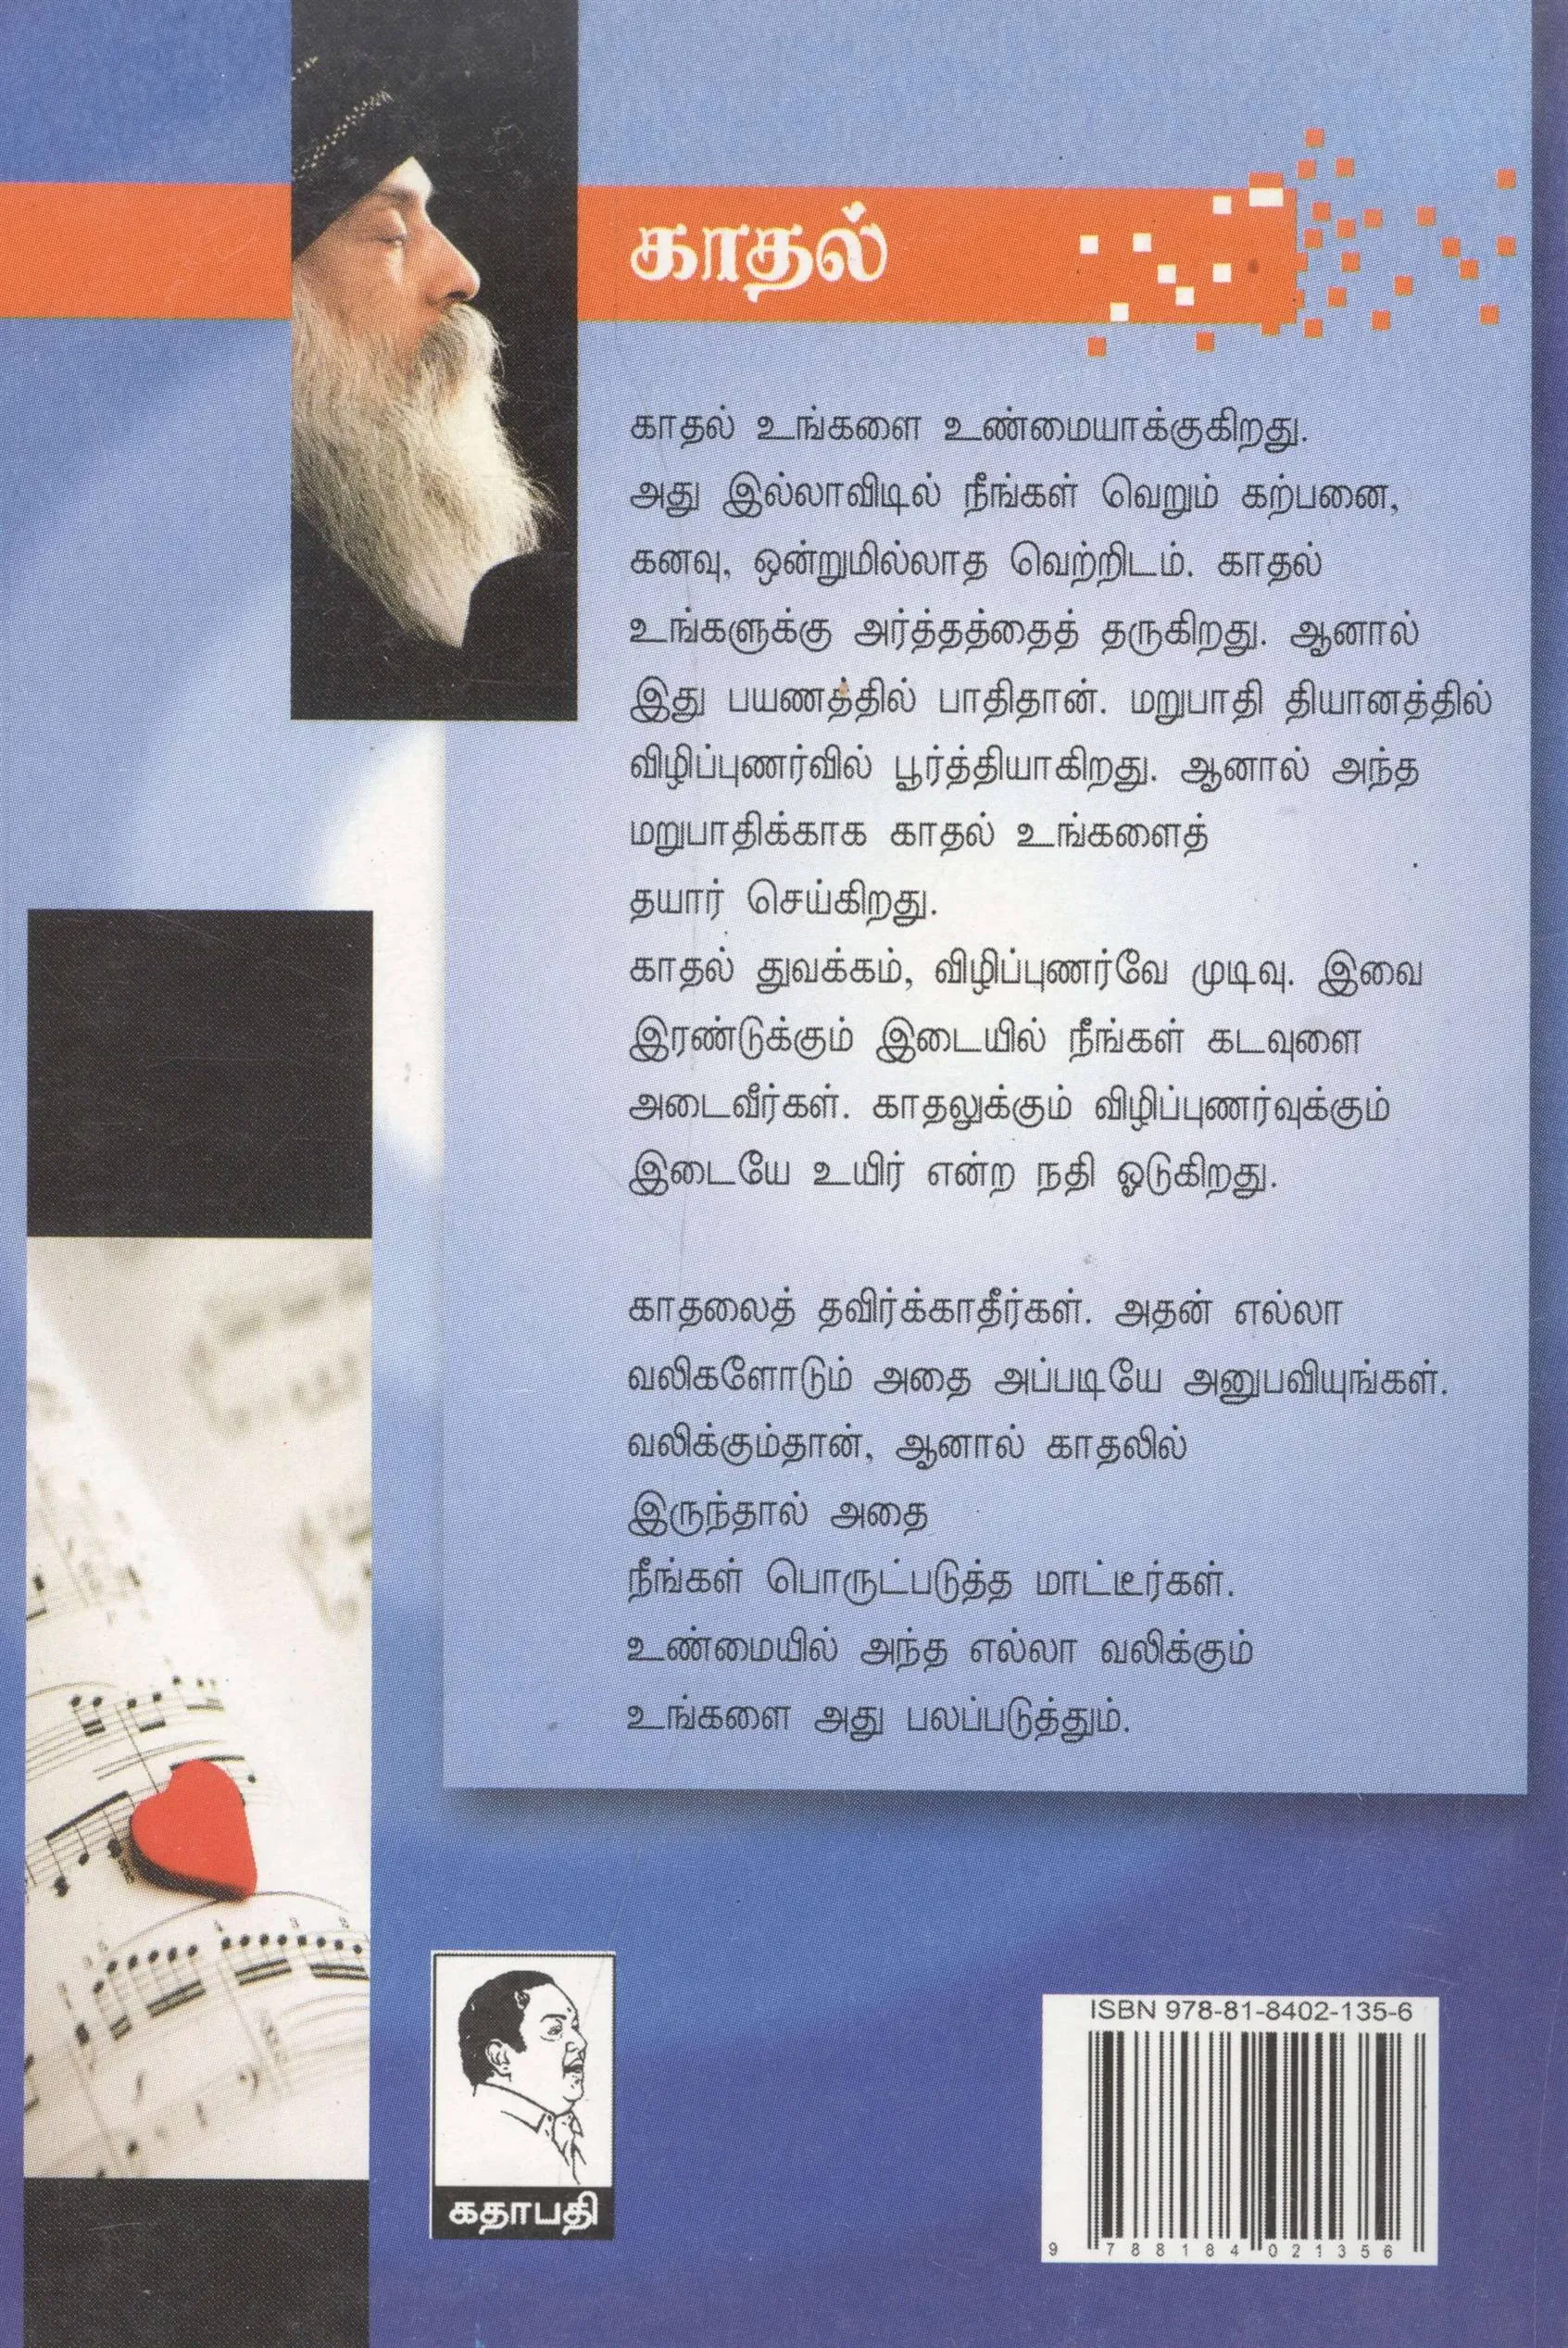 காதல்
காதல் உங்களை உண்மையாக்குகிறது.
அது இல்லாவிடில் நீங்கள் வெறும் கற்பனை,
கனவு, ஒன்றுமில்லாத வெற்றிடம். காதல்
உங்களுக்கு அர்த்தத்தைத் தருகிறது. ஆனால்
இது பயணத்தில் பாதிதான். மறுபாதி தியானத்தில்
விழிப்புணர்வில் பூர்த்தியாகிறது. ஆனால் அந்த
மறுபாதிக்காக காதல் உங்களைத்
தயார் செய்கிறது.
காதல் துவக்கம், விழிப்புணர்வே முடிவு. இவை
இரண்டுக்கும் இடையில் நீங்கள் கடவுளை
அடைவீர்கள். காதலுக்கும் விழிப்புணர்வுக்கும்
இடையே உயிர் என்ற நதி ஓடுகிறது.
காதலைத் தவிர்க்காதீர்கள். அதன் எல்லா
வலிகளோடும் அதை அப்படியே அனுபவியுங்கள்.
வலிக்கும்தான், ஆனால் காதலில்
இருந்தால் அதை
நீங்கள் பொருட்படுத்த மாட்டீர்கள்.
உண்மையில் அந்த எல்லா வலிக்கும்
உங்களை அது பலப்படுத்தும்.
கதாபதி
ISBN 978-81-8402-135-6
9 788184 021356